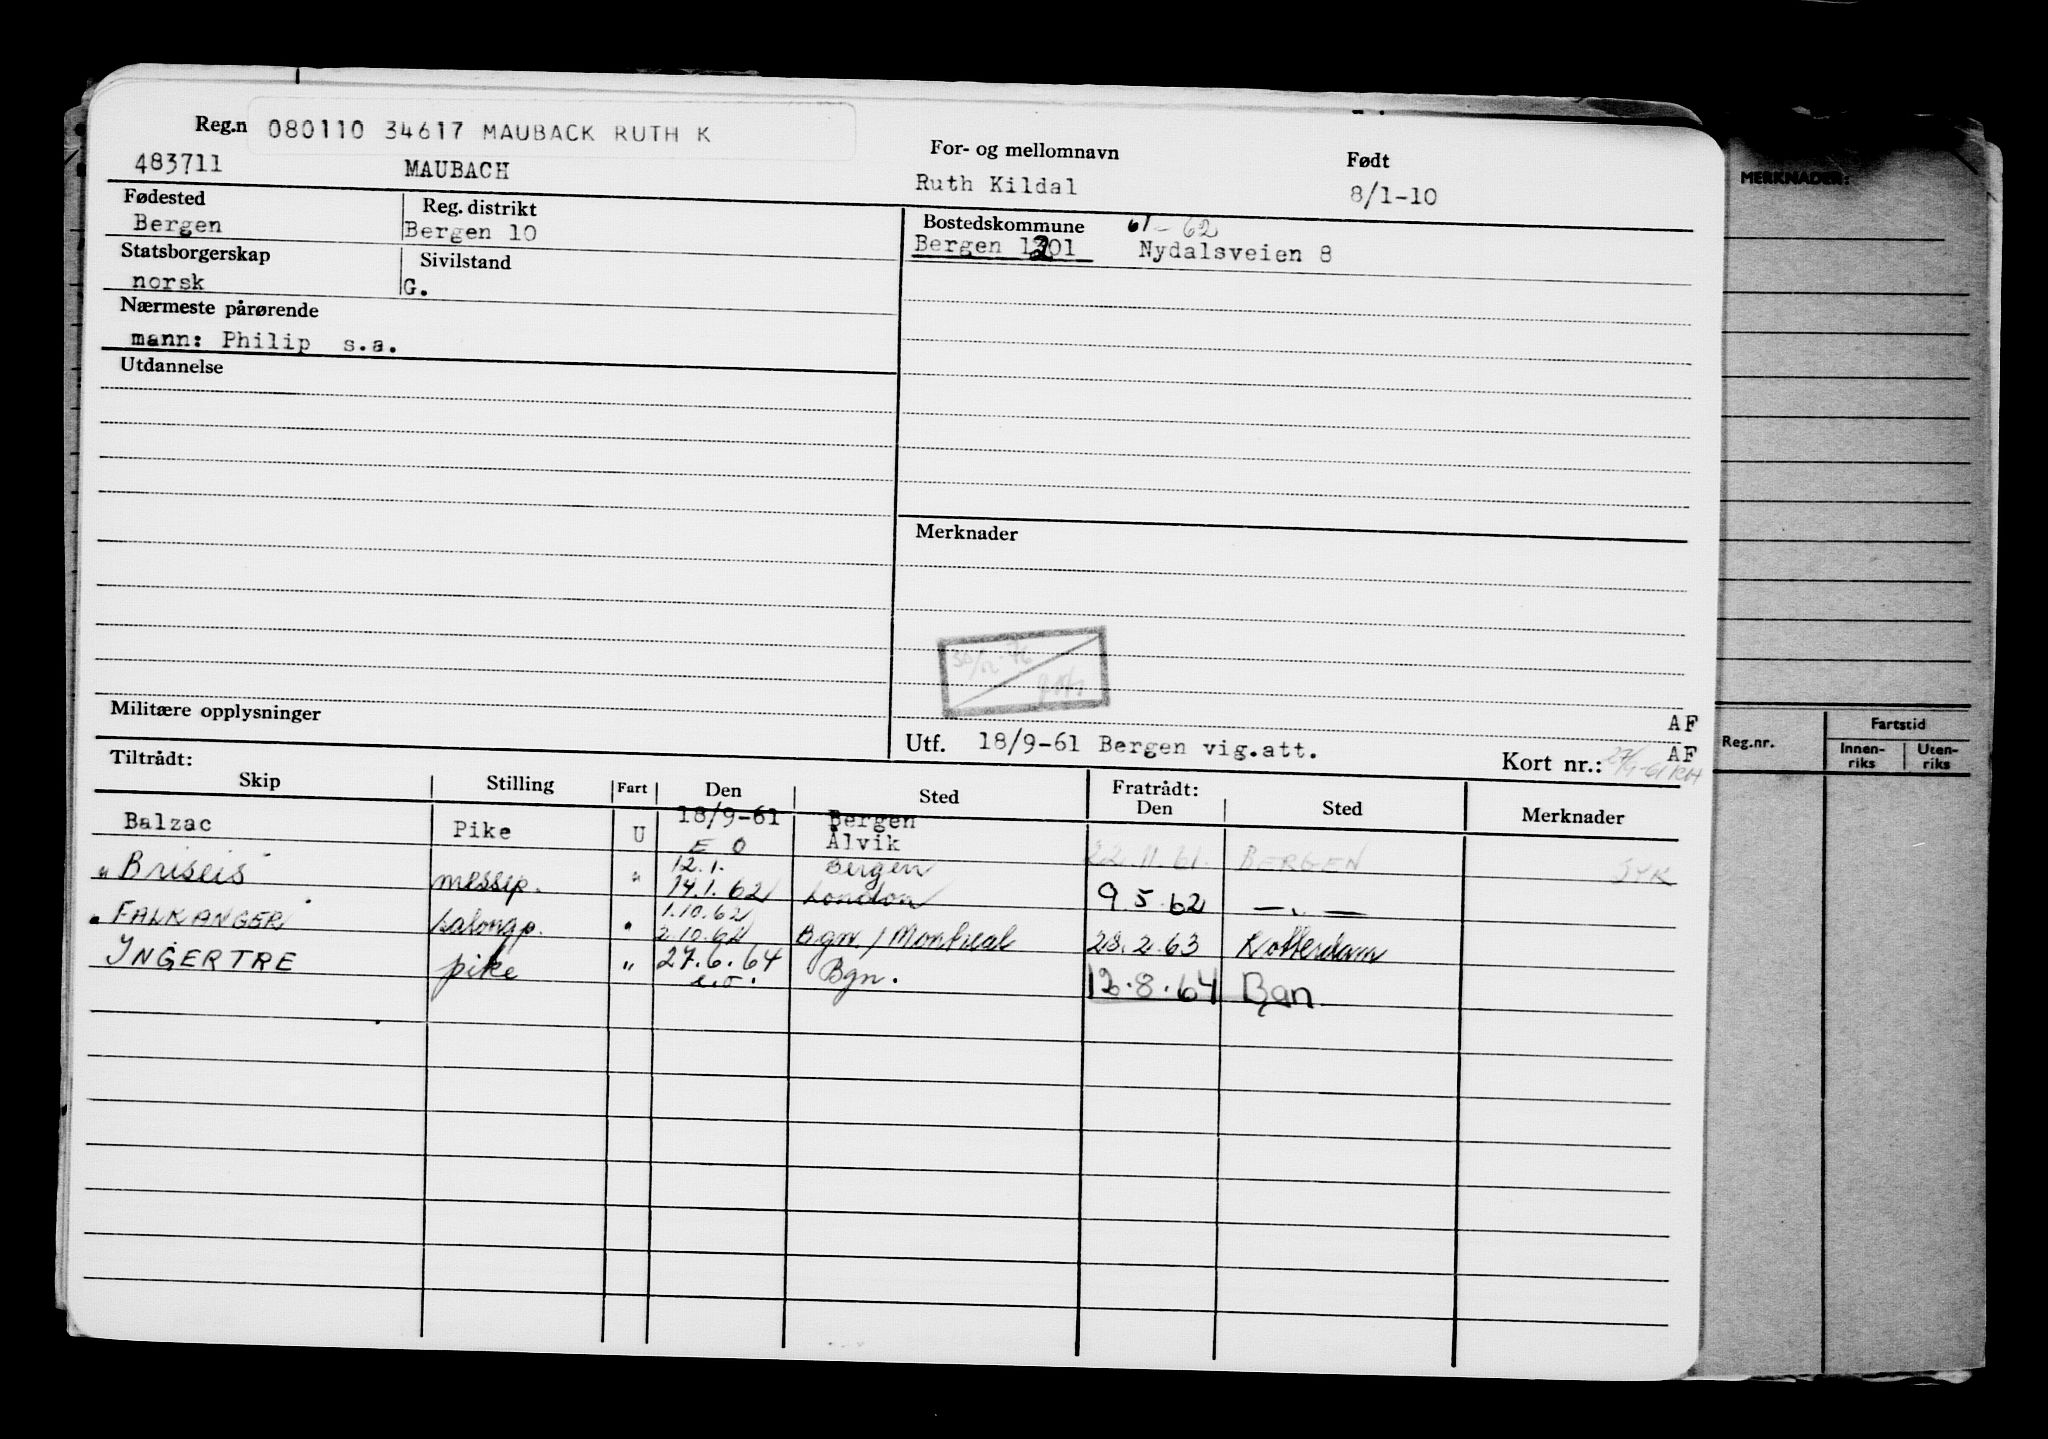 Reg.n 080110 34617 MAUBACK RUTH K
483711 MAUBACH
For- og mellomnavn
Ruth Kildal
Født
8/1-10
Fødested
Bergen
Reg. distrikt
Bergen 10
Bostedskommune 61-62
Bergen 1201 Nydalsveien 8
Statsborgerskap
norsk
Sivilstand
G.
Nærmeste pårørende
mann: Philip s.a.
Utdannelse
Merknader
Militære opplysninger
AF
Utf. 18/9-61 Bergen vig.att.
AF
Kort nr.:
Tiltrådt:
Skip Stilling Fart Den Sted Fratrådt: Den Sted Merknader
Balzac Pike U 18/9-61 Bergen
E O Ålvik 22.11.61. BERGEN SYK
" Briseis messp. " 12.1. Bergen
14.1.62 London 9.5.62 — " —
" FALKANGER salongp. " 1.10.62
2.10.62 Bgn. / Montreal 23.2.63 Rotterdam
INGERTRE pike " 27.6.64 Bgn. 12.8.64 Bgn.
e.o.
MERKNADER:
Reg.nr.
Fartstid
Innen-
riks
Uten-
riks